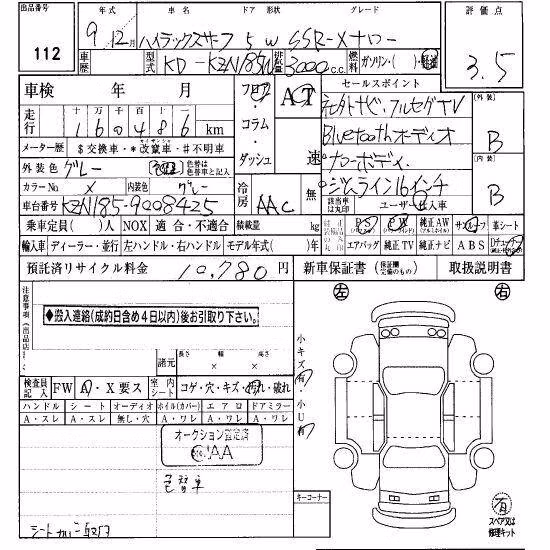 出品番号 車歴 車名 ドア 形状 グレード 評価点
112
9年12月 ハイラックスサーフ 5 W SSR-Xナロー
3.5
型式 KD-KZN185W 排気量 3000c.c. 燃料 ガソリン・( )・軽油
車検 年 月
フロア・コラム・ダッシュ
AT
速
セールスポイント
走行 十万千百十一
160486 km
社外ナビ、フルセグTV
Bluetoothオーディオ
ナローボディ
ジムライン16インチ
外装 B
内装 B
メーター歴 $交換車・*改ざん車・#不明車
外装色 グレー 色替は色替車と記入
カラーNo X 内装色 グレー
冷房 AAC
無
該当車は丸印 ユーザー買入車
車台番号 KZN185-9008425
乗車定員( )人 NOX 適合・不適合 積載量 kg
PS PW 純正AW サンルーフ 革シート
輸入車 ディーラー・並行 左ハンドル・右ハンドル モデル年式( )年
エアバッグ 純正TV 純正ナビ ABS
預託済リサイクル料金 10,780円
新車保証書 (保証欄完備のもの) 取扱説明書
注意事項(出品店)
◆搬入連絡(成約日含め4日以内)後お引取り下さい。◆
左 右
諸元 長さ 幅 高さ
× ×
小キズ有・小U有
検査員記入 FW A・X要ス 室内シート コゲ・穴・キズ・汚れ・破れ
ハンドル シート オーディオ ホイル(カバー) エアロ ドアミラー
A・スレ A・スレ 無し・穴 A・ワレ A・ワレ A・ワレ
オークション鑑定済
JAAA
色替車
シートカバー取付
キーコーナー
有
スペア又は修理キット